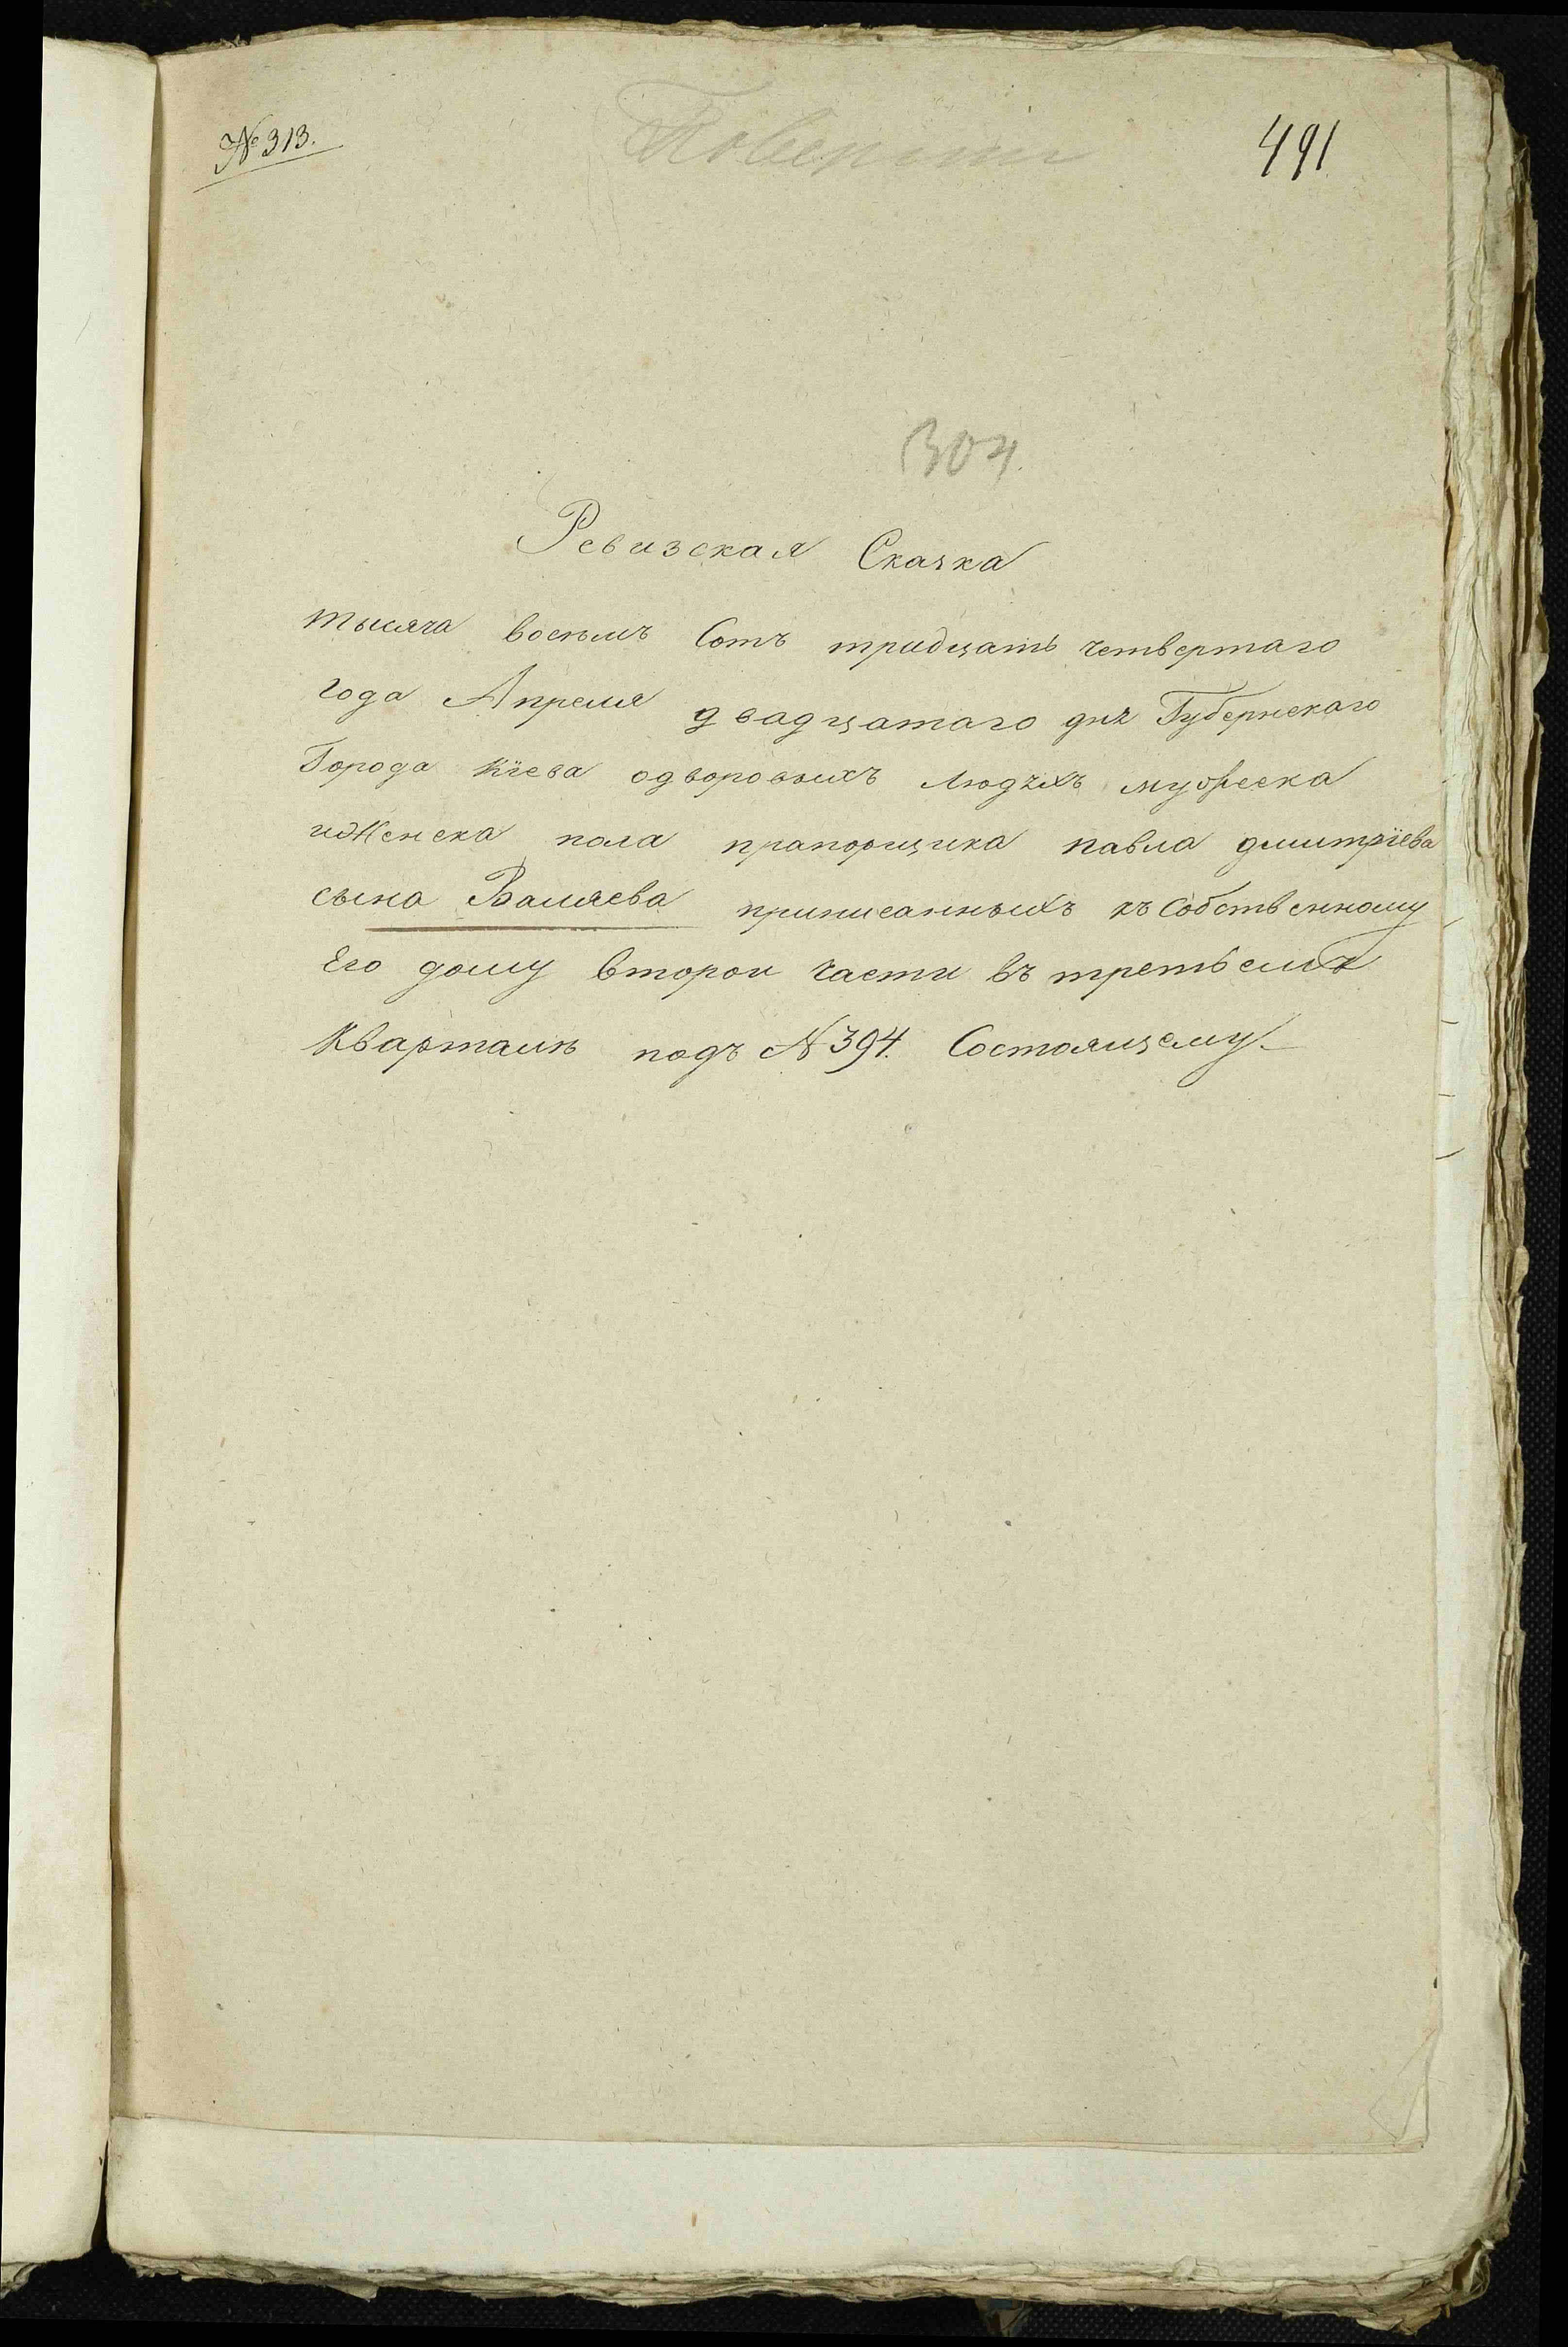 № 313.
491
304.
Ревизская Сказка
тысяча восемъ Сотъ тридцать четвертаго
года Апреля двадцатаго дня Губернскаго
Города Кіева одворовыхъ людѣхъ мужеска
иженска пола прапорщика павла дмитріева
сына Валяева приписанныхъ къ Собственному
Его дому второи части въ третьемъ
Квартали подъ № 394. Состоящему.